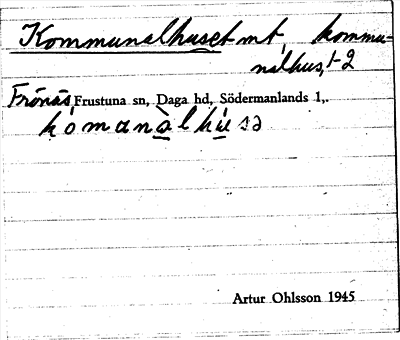 Kommunalhuset mt, kommu-
nalhus, t 2
Frönäs, Frustuna sn, Daga hd, Södermanlands l,.
kómanàlhúsə
Artur Ohlsson 1945